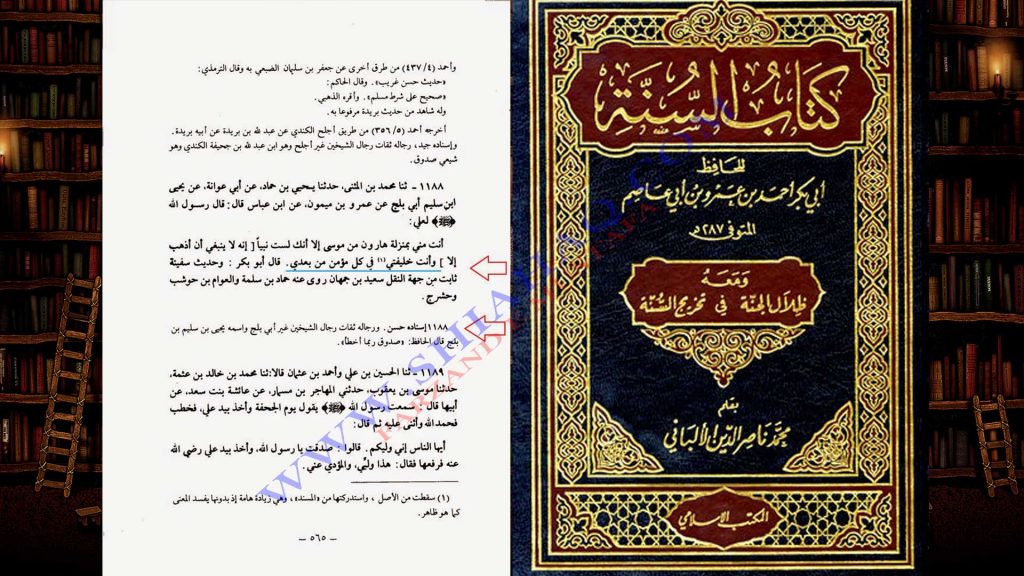 وأحمد (٤/ ٤٣٧) من طرق أخرى عن جعفر بن سليمان الضبعي به وقال الترمذي:
«حديث حسن غريب» . وقال الحاكم:
«صحيح على شرط مسلم» . وأقره الذهبي.
وله شاهد من حديث بريدة مرفوعا به.
أخرجه أحمد (٥/ ٣٥٦) من طريق أجلح الكندي عن عبد الله بن بريدة عن أبيه بريدة.
وإسناده جيد، رجاله ثقات رجال الشيخين غير أجلح وهو ابن عبد الله بن جحيفة الكندي وهو
شيعي صدوق.
١١٨٨ - ثنا محمد بن المثنى، حدثنا يحيى بن حماد، عن أبي عوانة، عن يحيى
ابن سليم أبي بلج عن عمرو بن ميمون، عن ابن عباس قال: قال رسول الله
﴿ﷺ﴾ لعلي:
أنت مني بمنزلة هارون من موسى إلا أنك لست نبياً [ إنه لا ينبغي أن أذهب
إلا ] وأنت خليفتي(١) في كل مؤمن من بعدي. قال أبو بكر : وحديث سفينة
ثابت من جهة النقل سعيد بن جمهان روى عنه حماد بن سلمة والعوام بن حوشب
وحشرج.
١١٨٨- إسناده حسن. ورجاله ثقات رجال الشيخين غير أبي بلج واسمه يحيى بن سليم بن
بلج قال الحافظ: «صدوق ربما أخطأ».
١١٨٩ - ثنا الحسين بن علي وأحمد بن عثمان قالا: ثنا محمد بن خالد بن عثمة،
حدثنا موسى بن يعقوب، حدثني المهاجر بن مسمار، عن عائشة بنت سعد، عن
أبيها قال : سمعت رسول الله ﴿ﷺ﴾ يقول يوم الجحفة وأخذ بيد علي، فخطب
فحمد الله وأثنى عليه ثم قال:
أيها الناس إني وليكم. قالوا : صدقت يا رسول الله، وأخذ بيد علي رضي الله
عنه فرفعها فقال: هذا وليّي، والمؤدي عني.
(١) سقطت من الأصل ، واستدركتها من «المسند»، وهي زيادة هامة إذ بدونها يفسد المعنى
كما هو ظاهر.
– ٥٦٥ –
كتاب السنة
للحافظ
أبي بكر احمد بن عمرو بن أبي عاصم
المتوفى ٢٨٧ هـ
ومعه
ظلال الجنة في تخريج السنة
بقلم
محمد ناصر الدين الألباني
المكتب الإسلامي